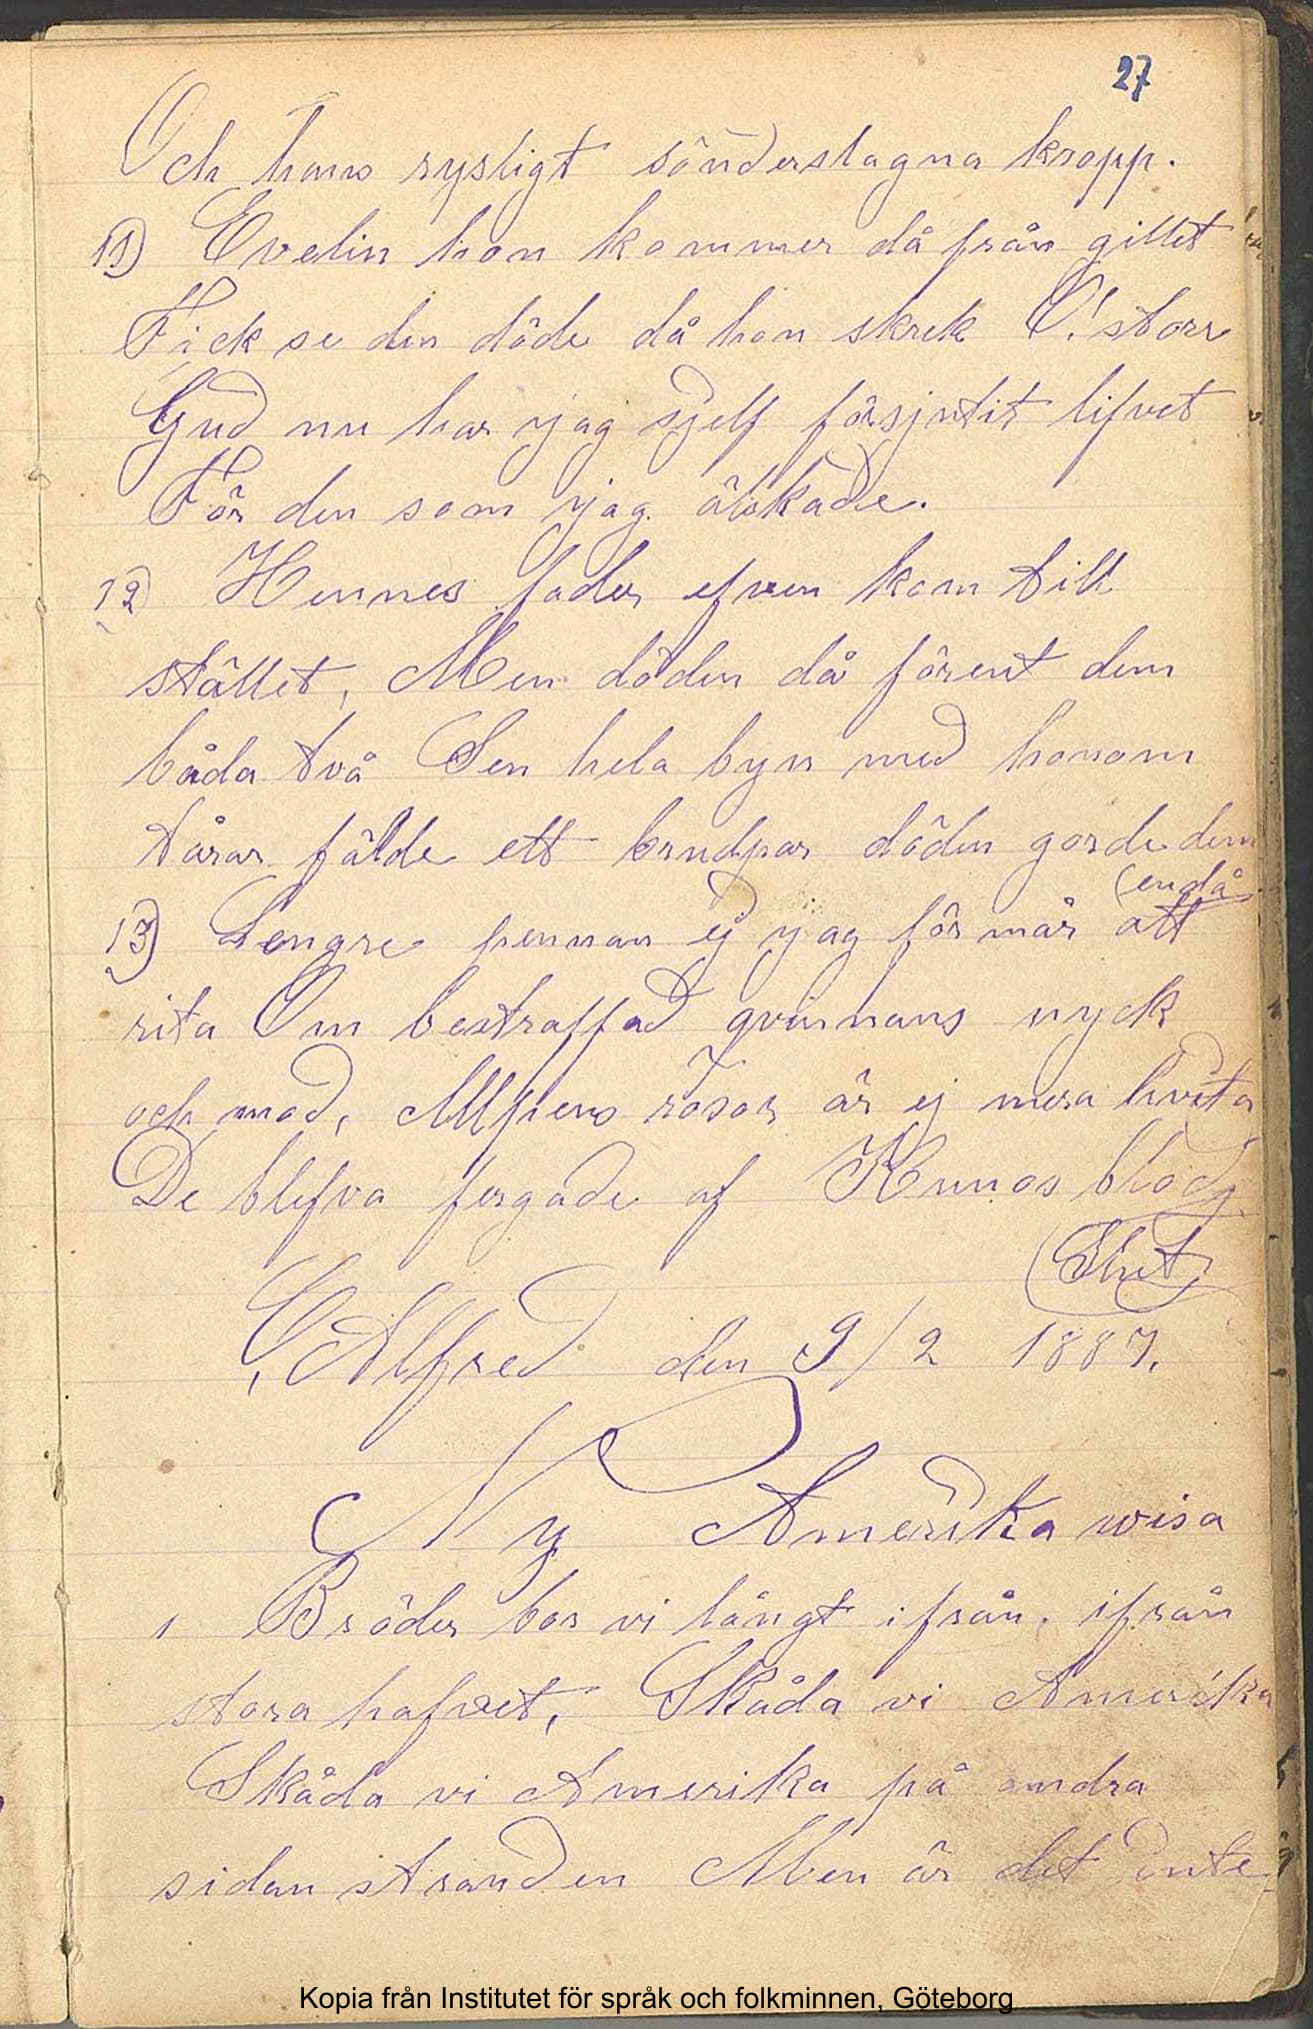 27
Och hans rysligt sönderslagna kropp.
11) Evelin hon kommer då från gillet
Fick se den döde då hon skrek O! storr
Gud nu har jag sjelf försjutit lifvet
För den som jag älskade.
12) Hennes fader efven kom till
stället, Men döden då förent dem
båda två Sen hela byn med honom
tårar fälde ett brudpar döden gorde dem
(endå
13) Lengre pennan ej jag för mår att
rita Om bestraffad qvinnans nyck
och mod, Allpens rosor är ej mera hvita
De blefva fergade af Kunos blod,
(Slut)
Alfred den 9/2 1887.
Ny Amerika wisa
1 Bröder bor vi långt ifrån, ifrån
stora hafvet, Skåda vi Amerika
Skåda vi Amerika på andra
sidan stranden Men är det inte
Kopia från Institutet för språk och folkminnen, Göteborg